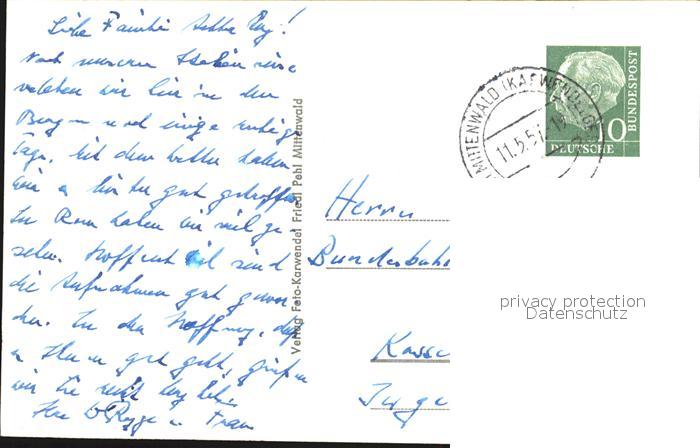 Liebe Familie
Nach unserer
wir hier in den
Bergen noch einige ruhige
Tage. Mit dem Wetter haben
wir es hier gut getroffen.
In Rom haben wir viel ge-
sehen. Hoffentlich sind
die Aufnahmen gut gewor-
den. In der Hoffnung, daß
es Ihnen gut geht, grüßen
wir Sie recht herzlich.
Ihre u. Frau
Verlag Foto-Karwendel Friedl Pehl Mittenwald
MITTENWALD (KARWENDELGEB
11.5.57
10
BUNDESPOST
DEUTSCHE
Herrn
Bundesbahn
Kasse
privacy protection
Datenschutz